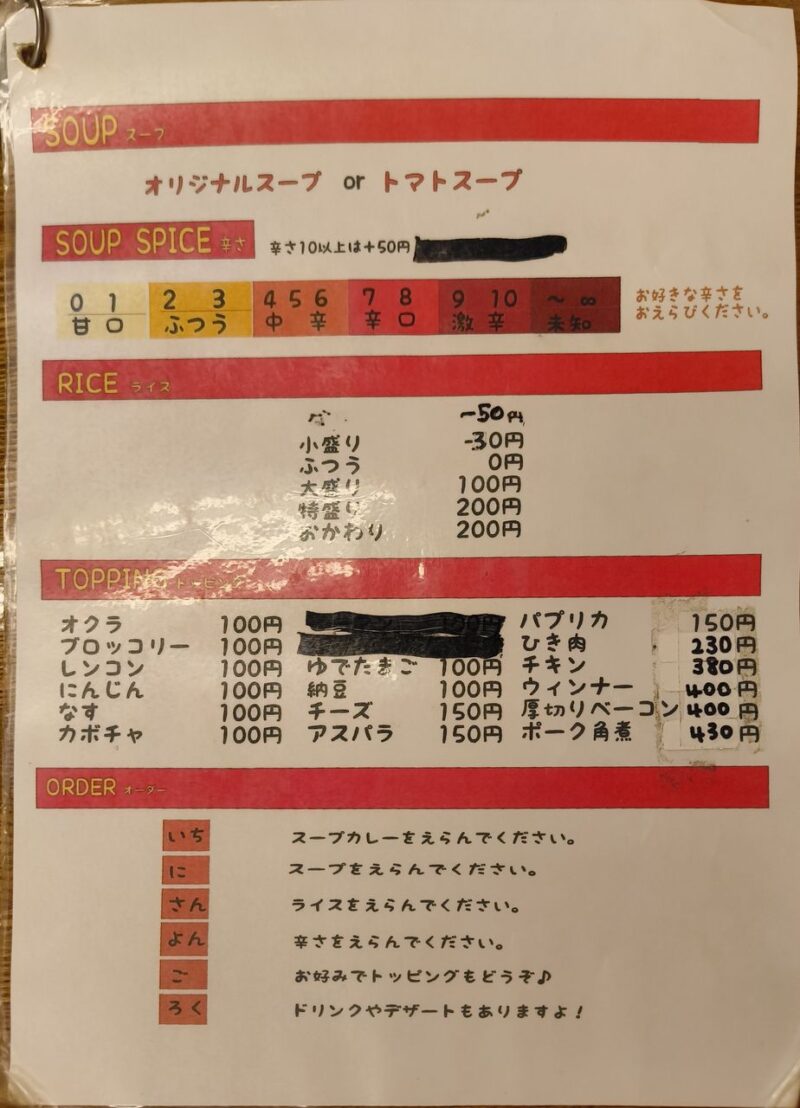 SOUP スープ
オリジナルスープ or トマトスープ
SOUP SPICE 辛さ 辛さ10以上は+50円
0 1 2 3 4 5 6 7 8 9 10 ~ ∞
甘口 ふつう 中辛 辛口 激辛 未知
お好きな辛さを
おえらびください。
RICE ライス
-50円
小盛り -30円
ふつう 0円
大盛り 100円
特盛り 200円
おかわり 200円
TOPPING トッピング
オクラ 100円 パプリカ 150円
ブロッコリー 100円 ひき肉 230円
レンコン 100円 ゆでたまご 100円 チキン 380円
にんじん 100円 納豆 100円 ウィンナー 400円
なす 100円 チーズ 150円 厚切りベーコン 400円
カボチャ 100円 アスパラ 150円 ポーク角煮 430円
ORDER オーダー
いち スープカレーをえらんでください。
に スープをえらんでください。
さん ライスをえらんでください。
よん 辛さをえらんでください。
ご お好みでトッピングもどうぞ♪
ろく ドリンクやデザートもありますよ!